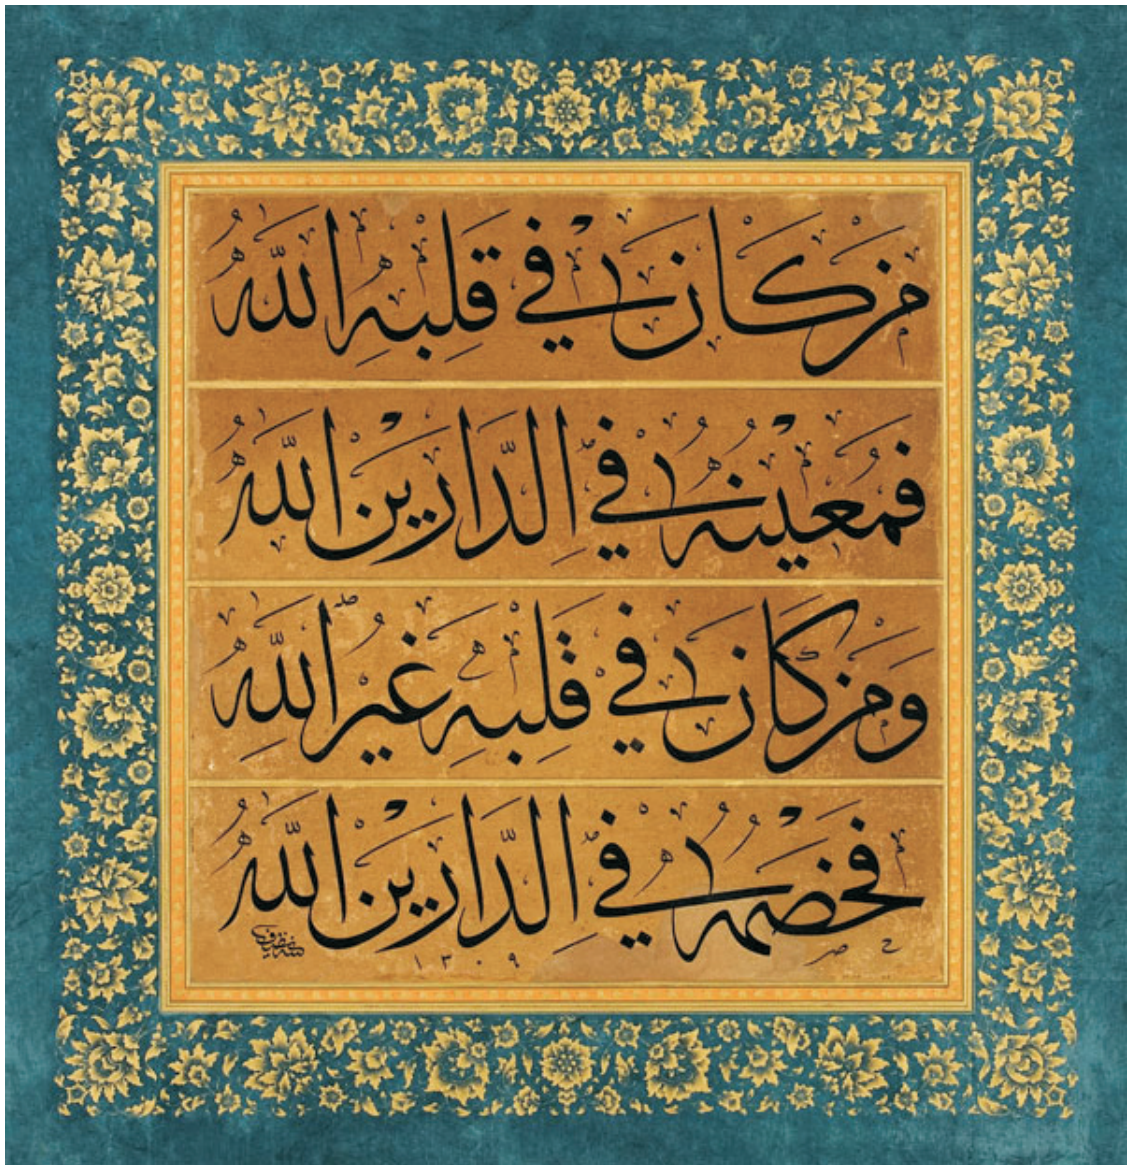 من كان في قلبه الله
فمعينه في الدارين الله
ومن كان في قلبه غير الله
فخصمه في الدارين الله
سنه ١٣٠٩